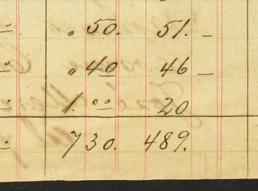 " 50. 51. –
" 40 46 –
1. 00 20
730. 489.